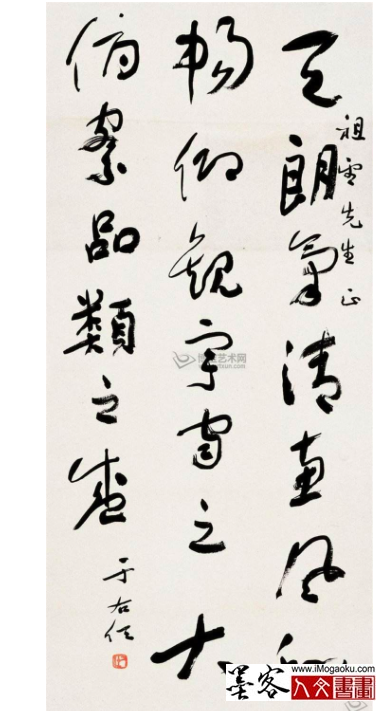 天朗氣清惠風和
祖雲先生正
暢仰觀宇宙之大
俯察品類之盛
于右任
艺术网
墨客
www.iMogaoku.com
人文書畫